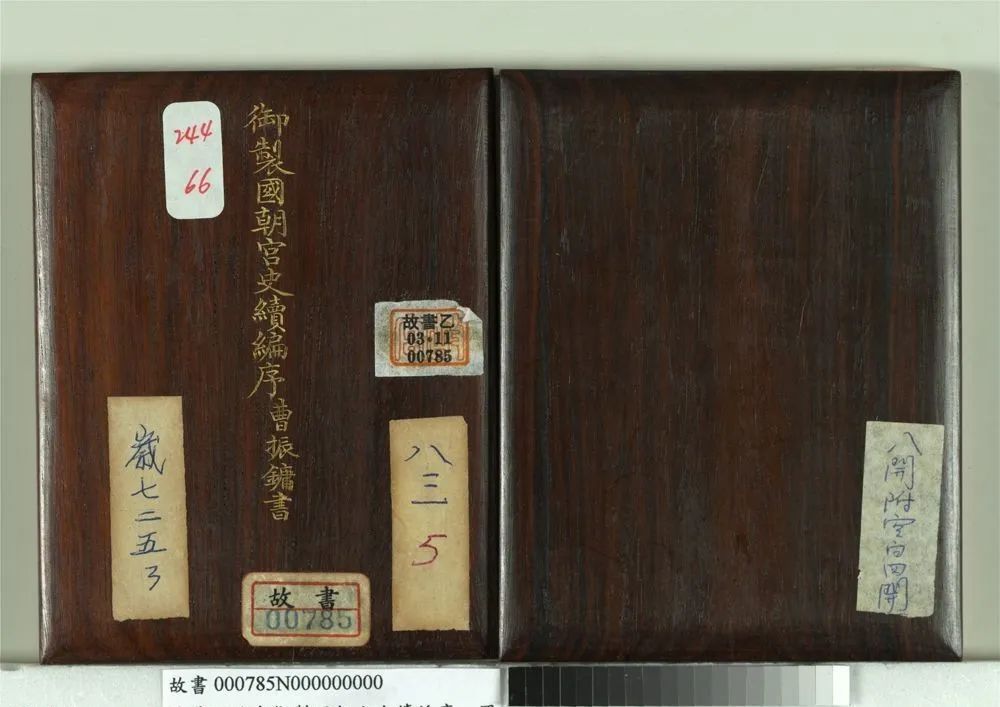 244
66
御製國朝宮史續編序 曹振鏞書
故書乙
03·11
00785
歲七二五
八三
5
故書
00785
八開附空白四開
故書 000785N000000000